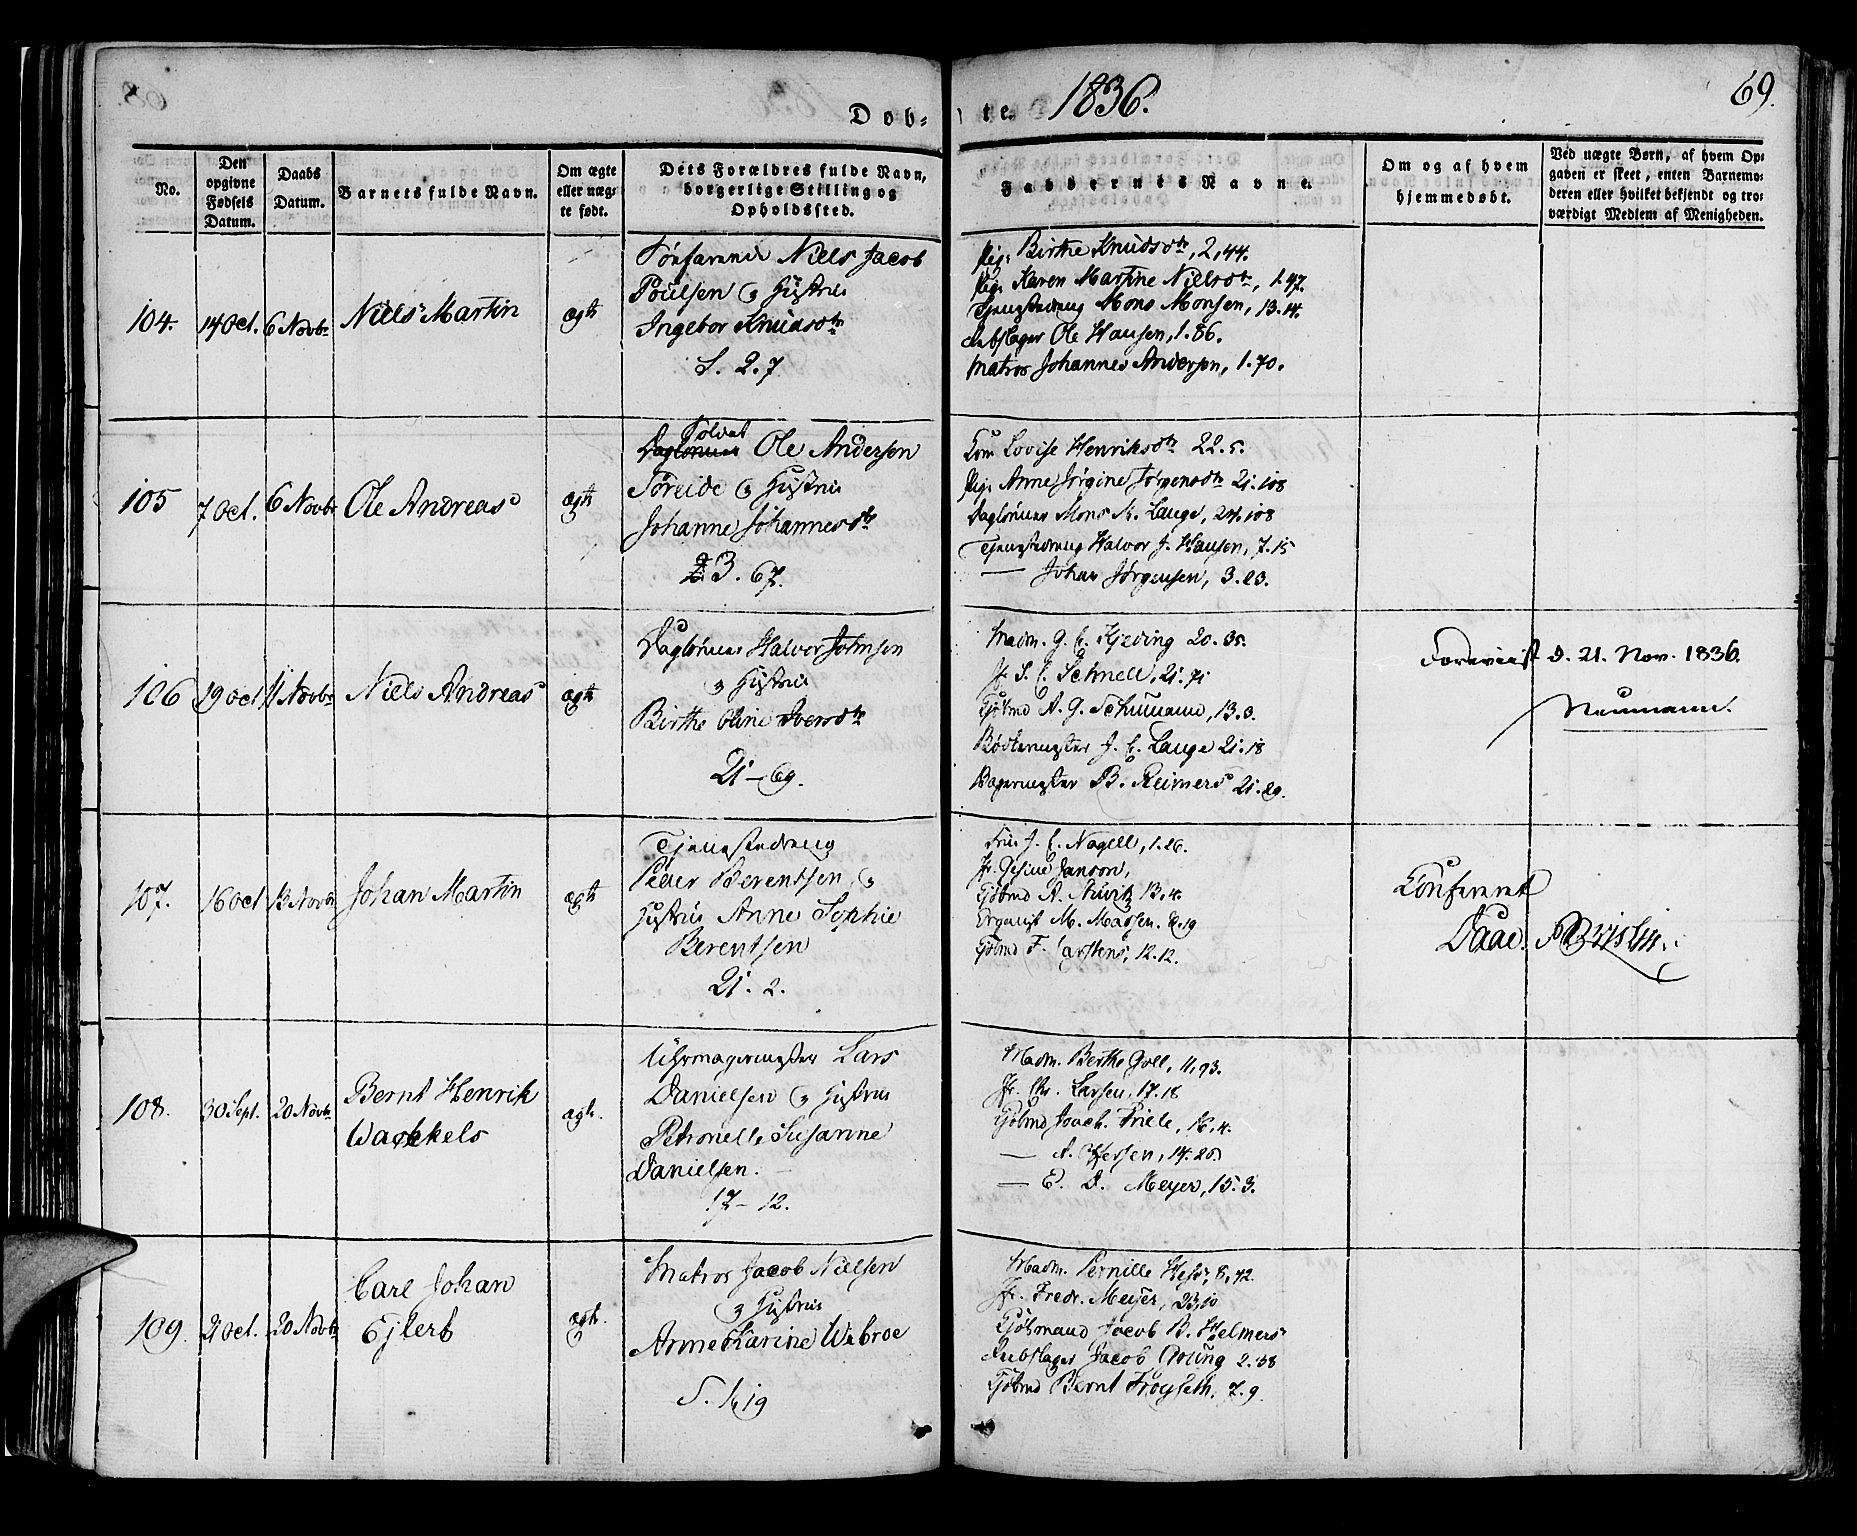 Døb-
te.
1836.
69.
No.
Den opgivne Fødsels Datum.
Daabs Datum.
Barnets fulde Navn.
Om ægte eller uæg- te født.
Dets Forældres fulde Navn, borgerlige Stilling og Opholdssted.
Faddernes Navne.
Om og af hvem hjemmedøbt.
Ved uægte Børn, af hvem Op- gaven er skeet, enten Barnemo- deren eller hvilket bekjendt og tro- værdigt Medlem af Menigheden.
104.
14 Oct.
6 Novbr
Niels Martin
ægte
Niels Jacob
Poulsen og Hustrue
Ingebor Knudsdtr
S. 2.7
Pige Birthe Knudsdtr, 2,44.
Pige Karen Martine Nielsdtr, 1.47.
Tjenestedreng Mons Monsen, 13.14.
Rebslager Ole Hansen, 1.86.
Matros Johannes Andersen, 1.70.
105
7 Oct.
6 Novbr
Ole Andreas
ægte
Soldat
Daglønner Ole Andersen
Søreide og Hustrue
Johanne Johannesdtr
23. 67.
Kone Lovise Henriksdtr 22.5.
Pige Anne Jørgine Jørgensdtr 21.108
Daglønner Mons M. Lange, 24.108
Tjenestedreng Halvor J. Hansen, 7.15
— Johan Jørgensen, 3.23.
106
19 Oct
11 Novbr
Niels Andreas
ægte
Daglønner Halvor Johnsen
og Hustrue
Birthe Oline Iversdtr
21-69.
Madm. G. C. Kjeding 20.35.
Jf. S. C. Schnell, 21.71
Kjøbmd A. G. Schumann, 13.3.
Bødkermester J. C. Lange 21.18
Bagermester B. Reimers 21.29.
Foreviist d. 21. Nov. 1836.
Neumann.
107.
16 Oct
13 Novbr
Johan Martin
ægte
Tjenestedreng
Peder Berentsen, og
Hustrue Anne Sophie
Berentsen
21. 2.
Frue J. C. Nagell, 1.26.
Jfr. Gesine Janson,
Kjøbmd A. 13.4.
Organist M. Madsen. 8.19
Kjøbmd F. Carstens, 12.12.
Confereret
Daae.
108.
30 Sept.
20 Novbr
Bernt Henrik
ægte.
Uhrmagermester Lars
Danielsen og Hustrue
Petronelle Susanne
Danielsen.
17-12.
Madm. Berthe Goll, 11,93.
Jfr. Chr. Larsen, 17.18
Kjøbmd Joach. Friele, 16.4.
—
— E. D. Meyer, 15.3.
109.
2 Oct.
20 Novbr
Carl Johan
Ejlert
ægte.
Matros Jacob Nielsen
og Hustrue
Anne Karine Wibroe
Madm. Pernille 8,42.
Jfr. Fredr. Meyer, 23,10
Kjøbmand Jacob B. Helmers
Rebslager Jacob 2.58
Kjøbmd Bernt Frøyseth, 7.9.